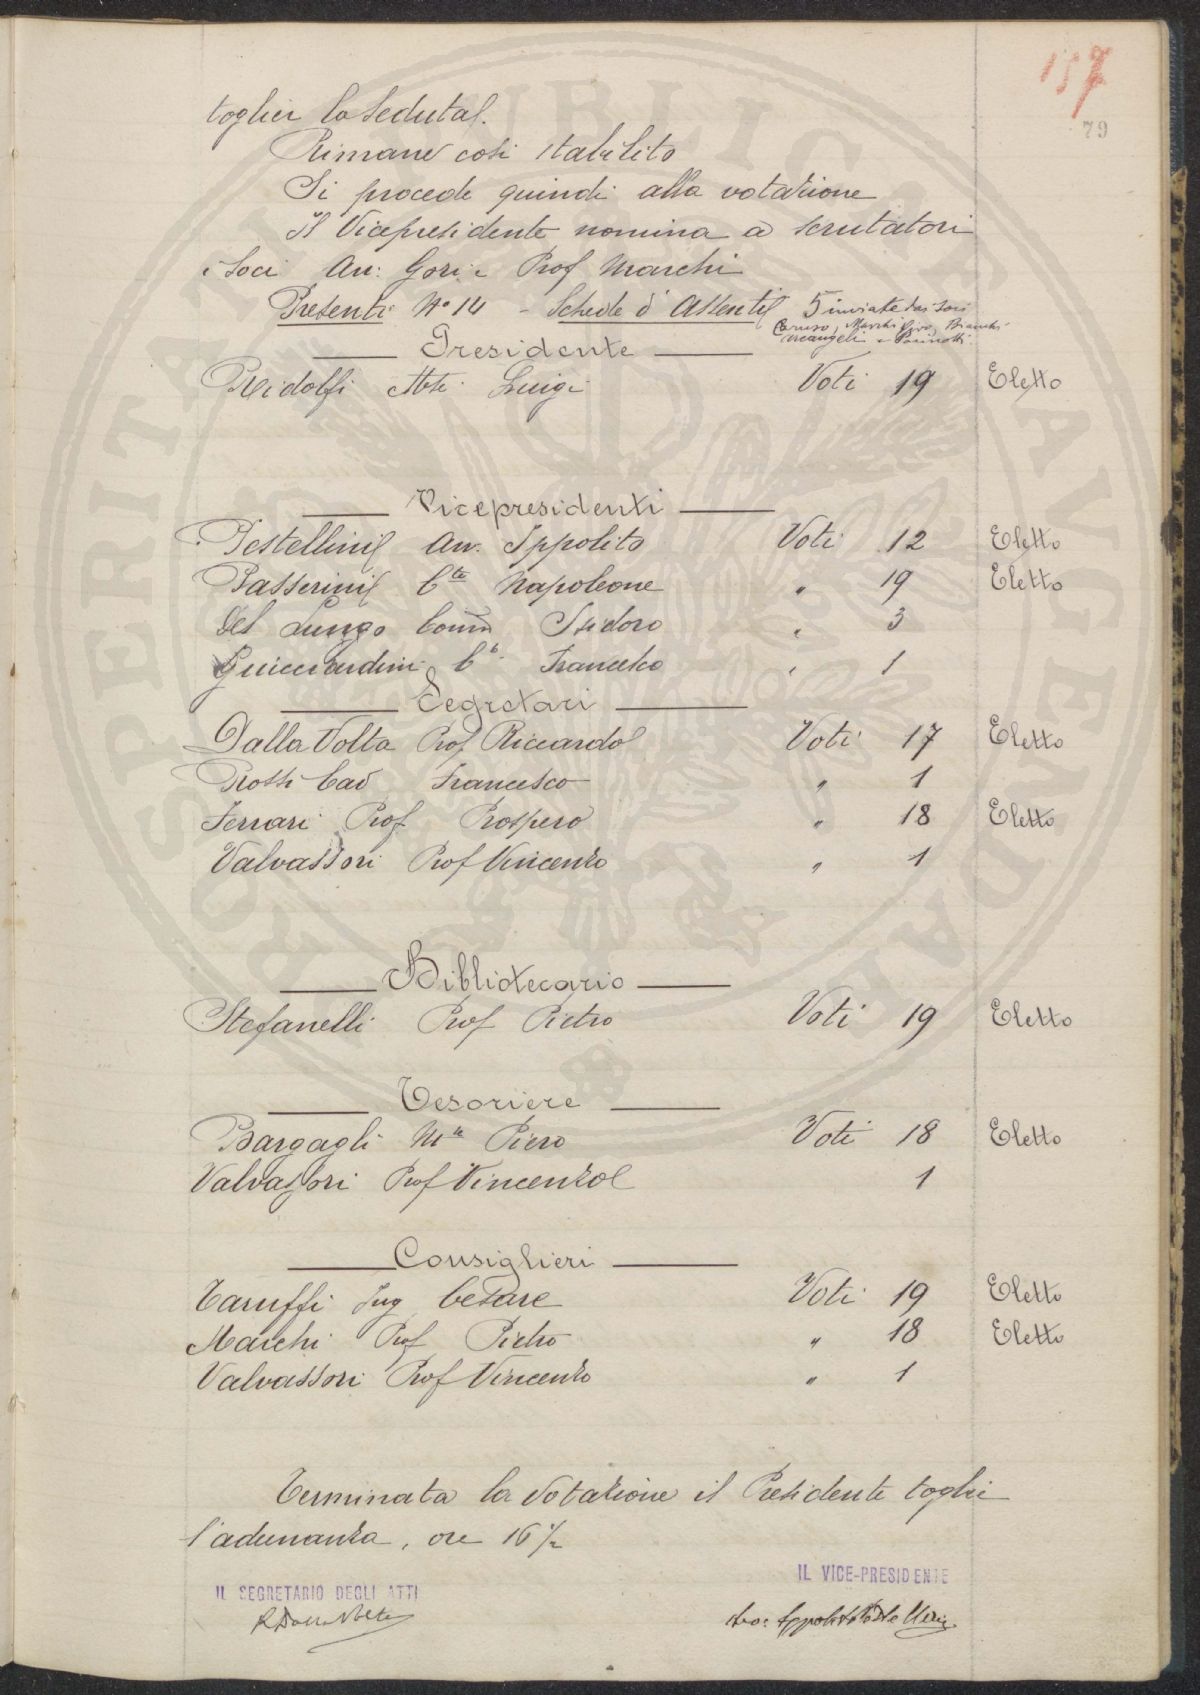 157
79
toglier la seduta.
Rimane così stabilito
Si procede quindi alla votazione
Il Vicepresidente nomina a scrutatori
i Soci Avv. Gori e Prof Marchi
Presenti No 14 - Schede d'Assenti 5 inviate dai Soci
Caruso, Marchi Gio, Bianchi
Arcangeli e Pacinotti
Presidente
Ridolfi Mse Luigi Voti 19 Eletto
Vicepresidenti
Pestellini Avv. Ippolito Voti 12 Eletto
Passerini Cte Napoleone " 19 Eletto
Del Lungo Comm Isidoro " 3
Guicciardini Cte Francesco " 1
Segretari
Dalla Volta Prof Riccardo Voti 17 Eletto
Rossi Cav Francesco " 1
Ferrari Prof Prospero " 18 Eletto
Valvassori Prof Vincenzo " 1
Bibliotecario
Stefanelli Prof Pietro Voti 19 Eletto
Tesoriere
Bargagli Mse Piero Voti 18 Eletto
Valvassori Prof Vincenzo 1
Consiglieri
Taruffi Ing Cesare Voti 19 Eletto
Marchi Prof Pietro " 18 Eletto
Valvassori Prof Vincenzo " 1
Terminata la votazione il Presidente toglie
l'adunanza, ore 16 1/2
IL SEGRETARIO DEGLI ATTI
IL VICE-PRESIDENTE
R Dalla Volta
Avv. Ippolito Pestellini
PROSPERITATI PUBLICAE AUGENDAE